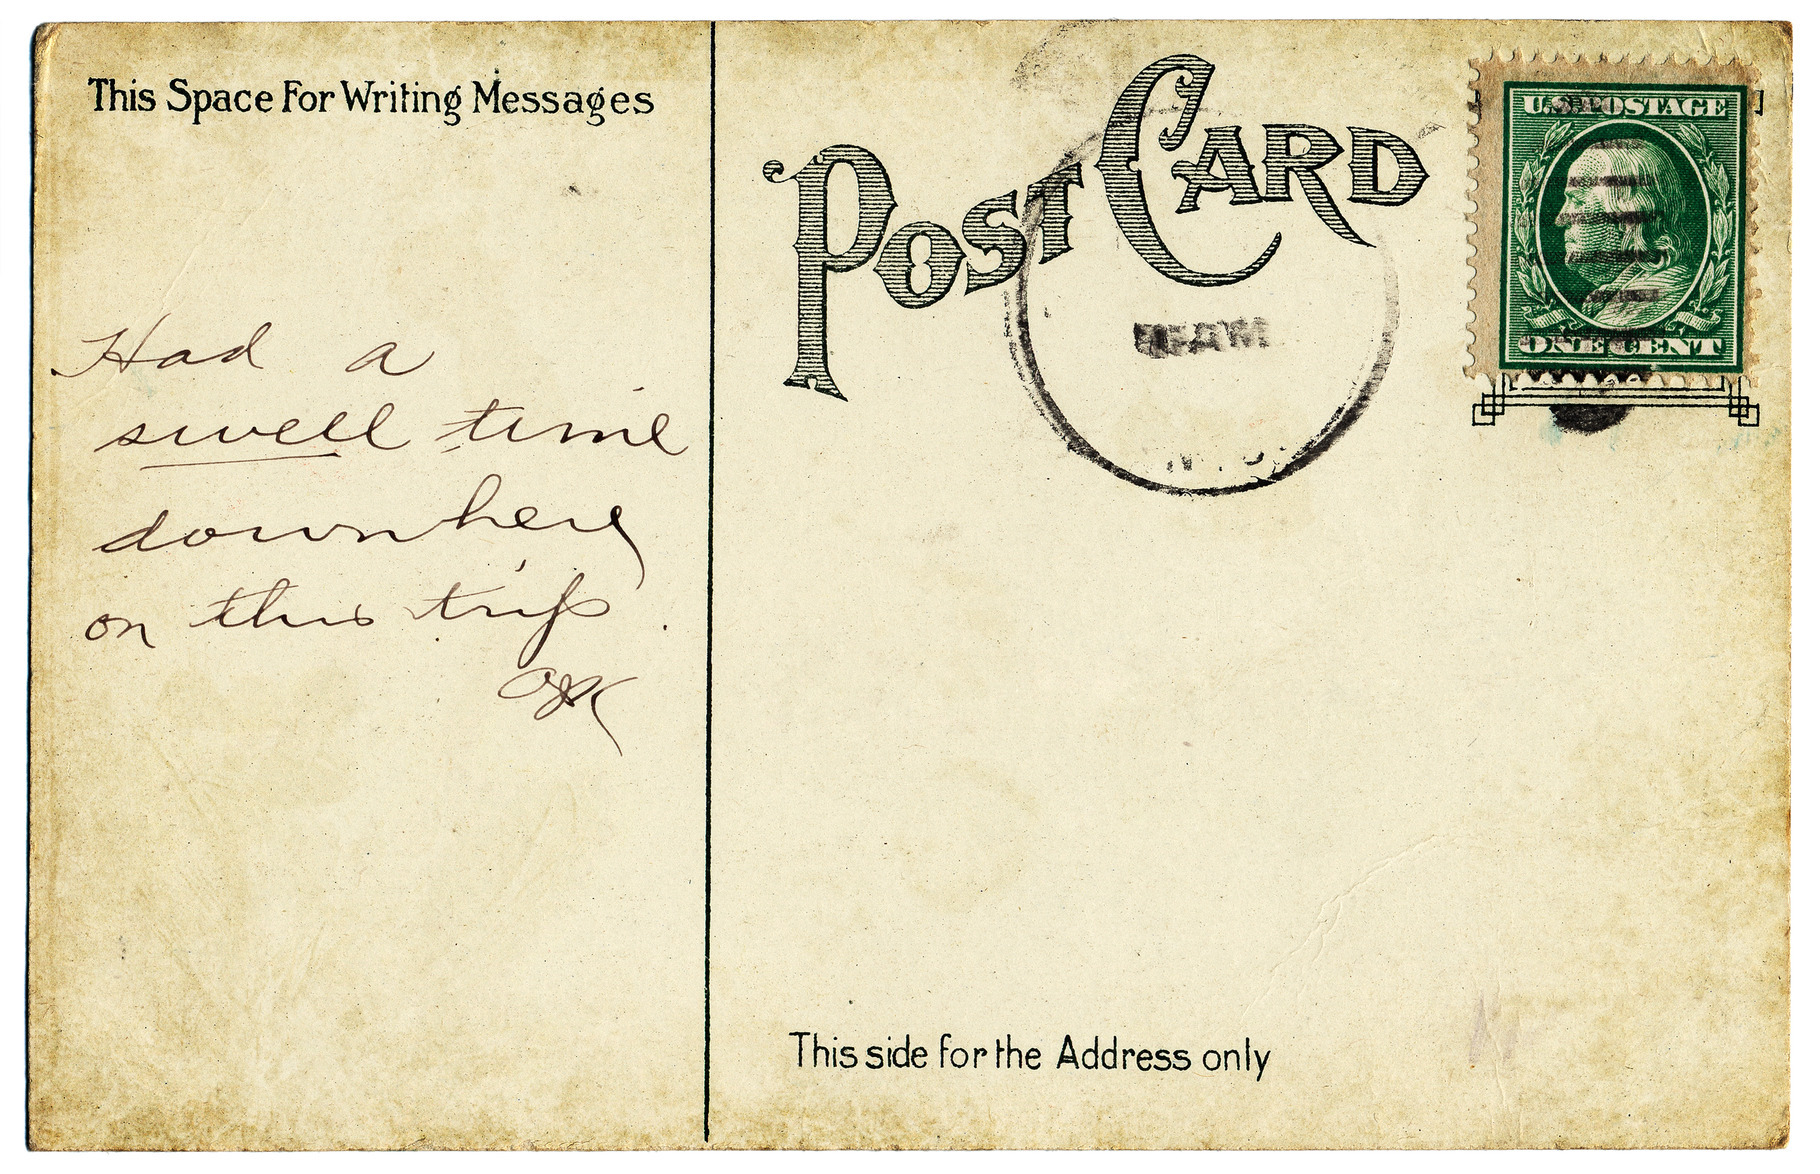 This Space For Writing Messages
Had a
swell time
down here
on this trip.
POST CARD
U.S. POSTAGE
ONE CENT
This side for the Address only